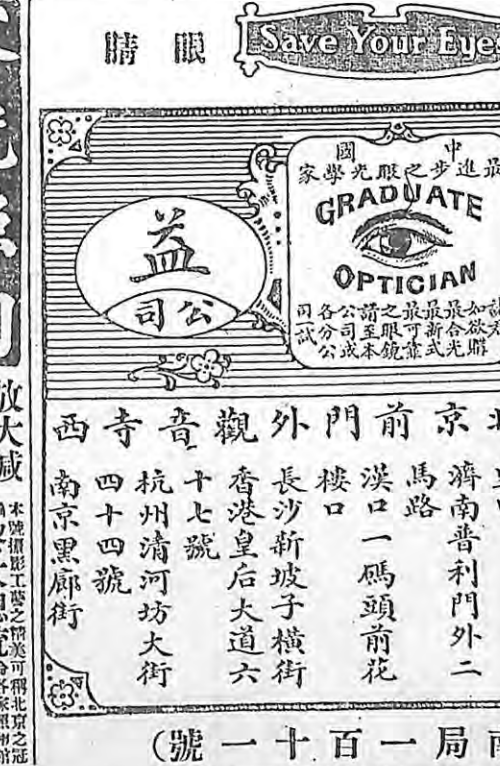 Save Your Eyes
眼睛
中國
最進步之眼光學家
GRADUATE
OPTICIAN
如欲購
最合光
最新式
最可靠
之眼鏡
請至本
公司或
各分公
司試
益
公司
京前門外觀音寺西
濟南普利門外二
馬路
漢口一碼頭前花
樓口
長沙新坡子橫街
香港皇后大道六
十七號
杭州清河坊大街
四十四號
南京黑廊街
局一百十一號)
放大減
本號攝影工藝之精美可稱北京之冠